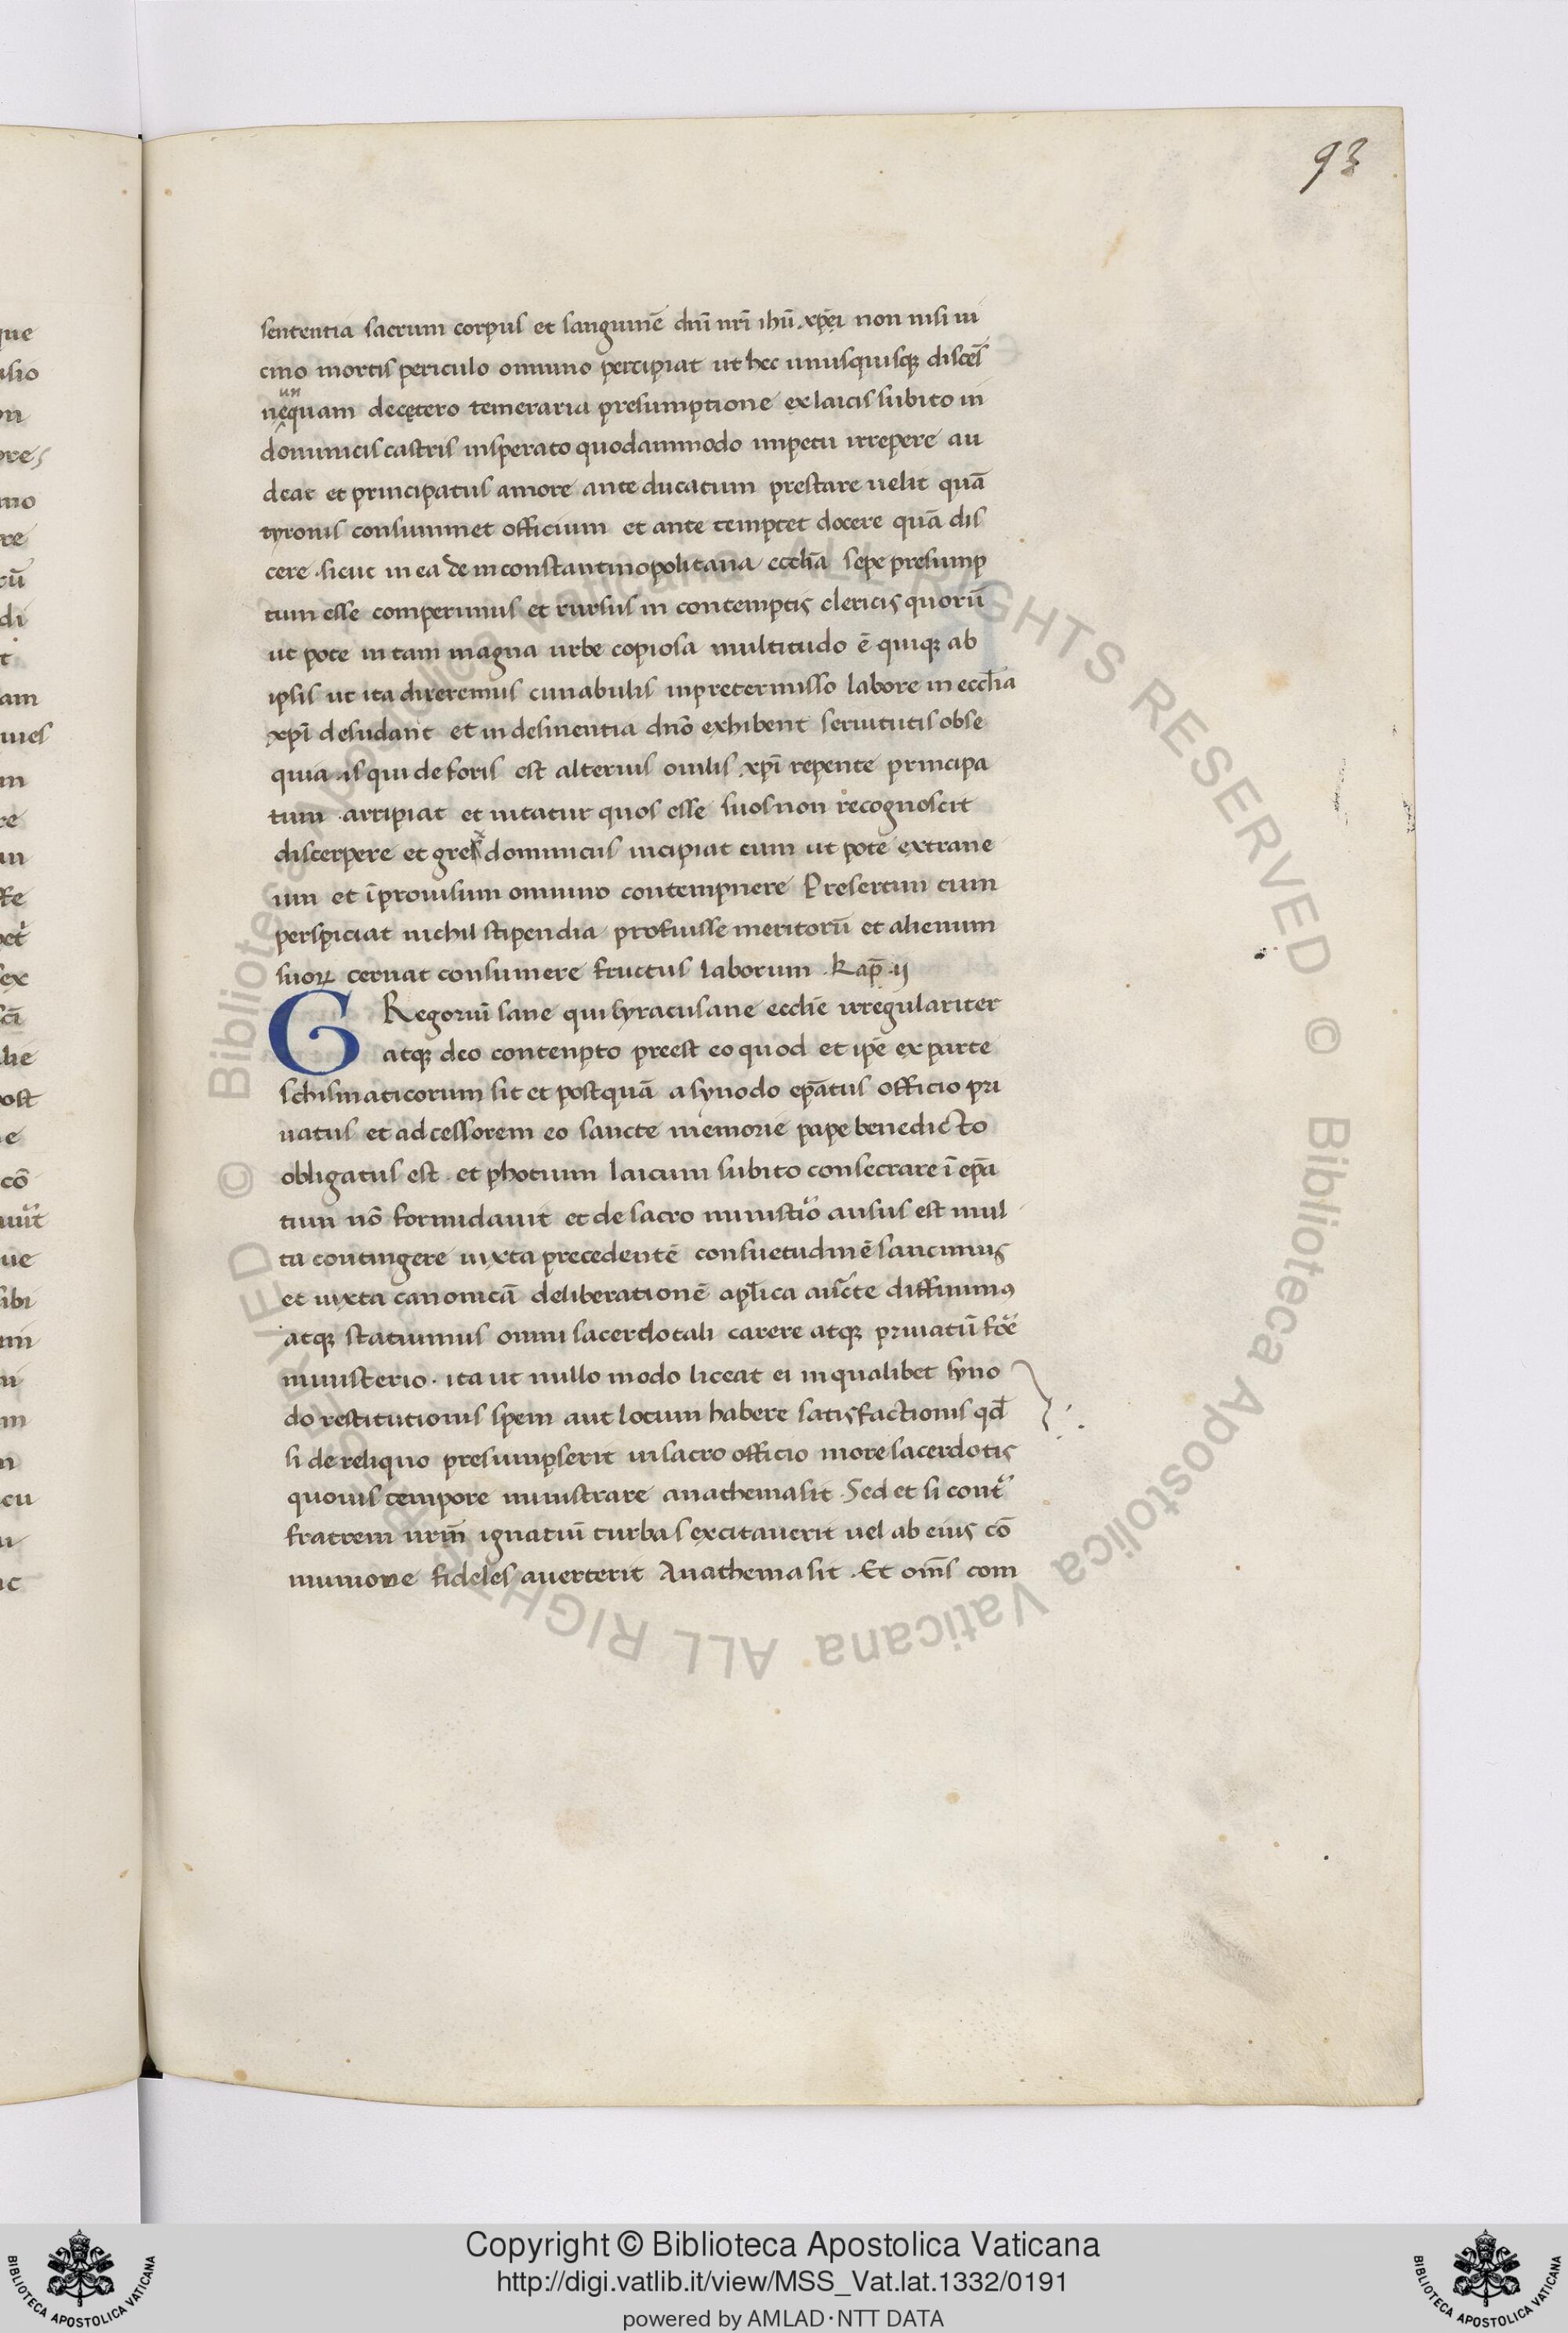 93
sententia sacrum corpus et sanguinē dnī nrī ihū xp̄ei non nisi ui
cino mortis periculo omnino percipiat ut hec unusquisq; discēs
neunquam decętero temeraria presumptione ex laicis subito in
dominicis castris insperato quodammodo impetu irrepere au
deat et principatus amore ante ducatum prestare uelit quā
tyronis consummet officium et ante temptet docere quā dis
cere . sicut in ea de in constantinopolitana eccl̄ia sepe presump
tum esse comperimus et rursus in contemptis clericis quorū
ut pote in tam magna urbe copiosa multitudo ē quiq; ab
ipsis ut ita direremus cunabulis inpretermisso labore in eccl̄ia
xpī desudant et indesinentia dnō exhibent seruitutis obse
quia . is qui de foris est alterius ouilis xpī repente principa
tum arripiat et nitatur quos esse suos non recognoscit
discerpere et grex dominicus incipiat eum ut pote extrane
um et īprouisum omnino contempnere Presertim cum
perspiciat nichil stipendia profuisse meritorū et alienum
suoꝝ cernat consumere fructus laborum . Kap̄ .ij
GRegoriū sane qui syracusane eccl̄ie irregulariter
atq; deo contenpto preest eo quod et ip̄e ex parte
schismaticorum sit et postquā a synodo ep̄atus officio pri
uatus et adcessorem eo sancte memorie pape benedicto
obligatus est . et photium laicum subito consecrare ī ep̄a
tum nō formidauit et de sacro ministio ausus est mul
ta contingere iuxta precedentē consuetudinē sancimus
et iuxta canonicā deliberationē apl̄ica aucte diffinimꝰ
atq; statuimus omni sacerdotali carere atq; priuatū foe
ministerio . ita ut nullo modo liceat ei in qualibet syno
do restitutionis spem aut locum habere satisfactionis qd̄
si de reliquo presumpserit in sacro officio more sacerdotis
quouis tempore ministrare anathema sit . Sed et si cont
fratrem nrm̄ ignatiū turbas excitauerit uel ab eius cō
munione fideles auerterit Anathema sit . Et om̄s com
Copyright © Biblioteca Apostolica Vaticana
http://digi.vatlib.it/view/MSS_Vat.lat.1332/0191
powered by AMLAD·NTT DATA